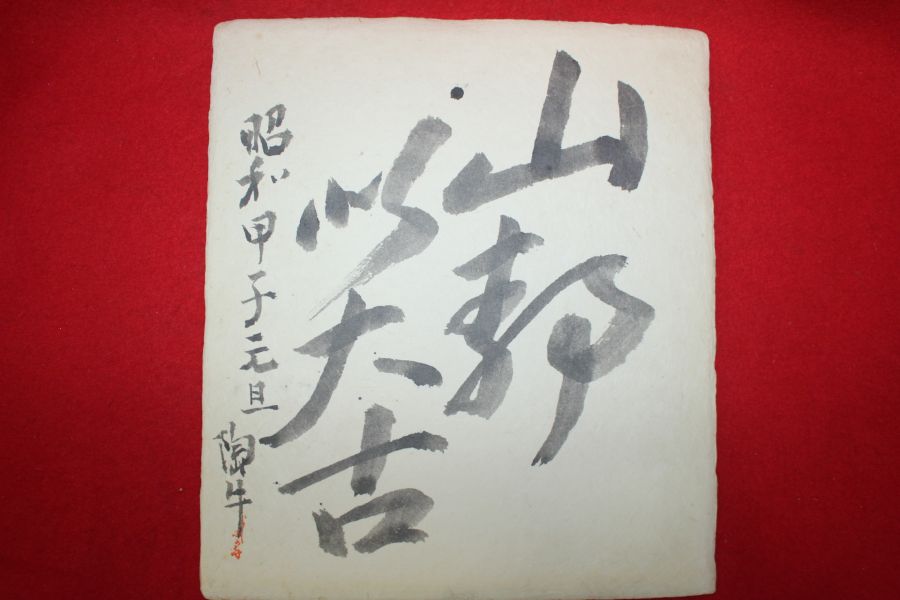 山静
似太古
昭和甲子元旦
陶牛